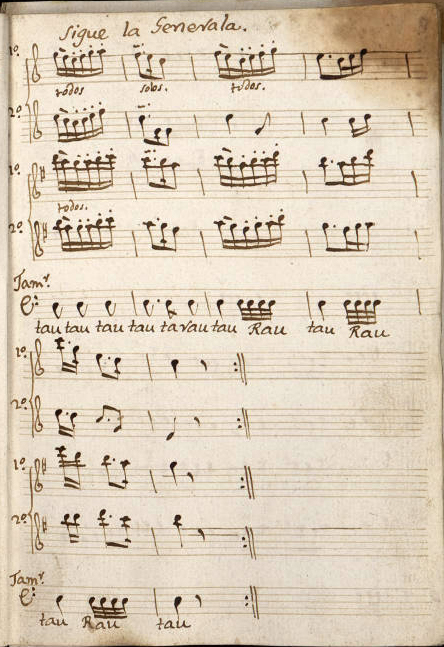 Sigue la Generala.
1º.
todos solos. todos.
2º.
1º
todos.
2º
Tamr.
tau tau tau tau ta rau tau Rau tau Rau
1º.
2º.
1º
2º.
Tamr.
tau Rau tau